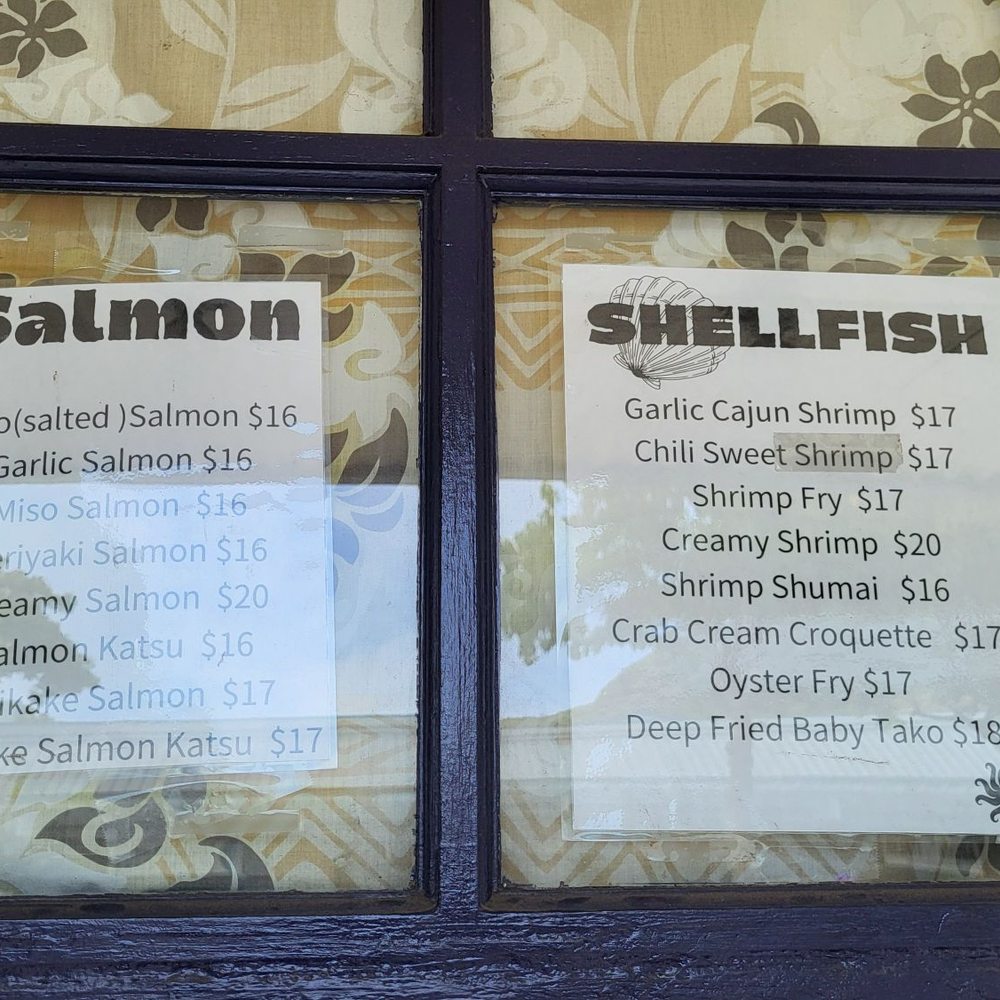 Salmon
o(salted )Salmon $16
Garlic Salmon $16
Miso Salmon $16
eriyaki Salmon $16
eamy Salmon $20
almon Katsu $16
ikake Salmon $17
ke Salmon Katsu $17
SHELLFISH
Garlic Cajun Shrimp $17
Chili Sweet Shrimp $17
Shrimp Fry $17
Creamy Shrimp $20
Shrimp Shumai $16
Crab Cream Croquette $17
Oyster Fry $17
Deep Fried Baby Tako $18